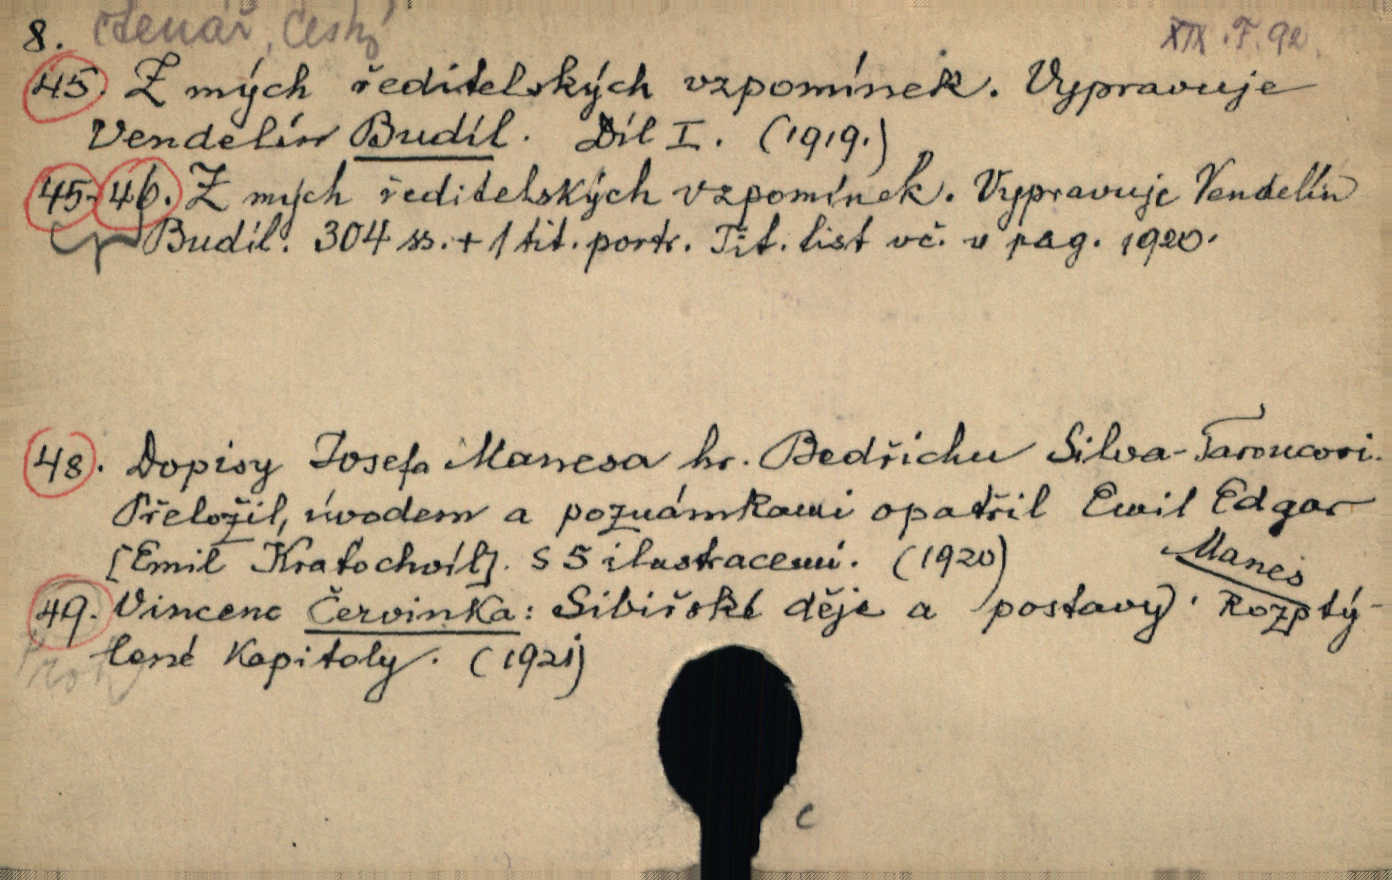 8. čtenář, český XIX.F.92.
45. Z mých ředitelských vzpomínek. Vypravuje
Vendelín Budil. Díl I. (1919.)
45-46. Z mých ředitelských vzpomínek. Vypravuje Vendelín
Budil. 304 ss. + 1 tit. portr. Tit. list vč. v pag. 1920.
48. Dopisy Josefa Manesa hr. Bedřichu Silva-Taroucovi.
Přeložil, úvodem a poznámkami opatřil Emil Edgar
[Emil Kratochvíl]. S 5 ilustracemi. (1920) Manes
49. Vincenc Červinka: Sibiřské děje a postavy. Rozptý-
lené kapitoly. (1921)
c